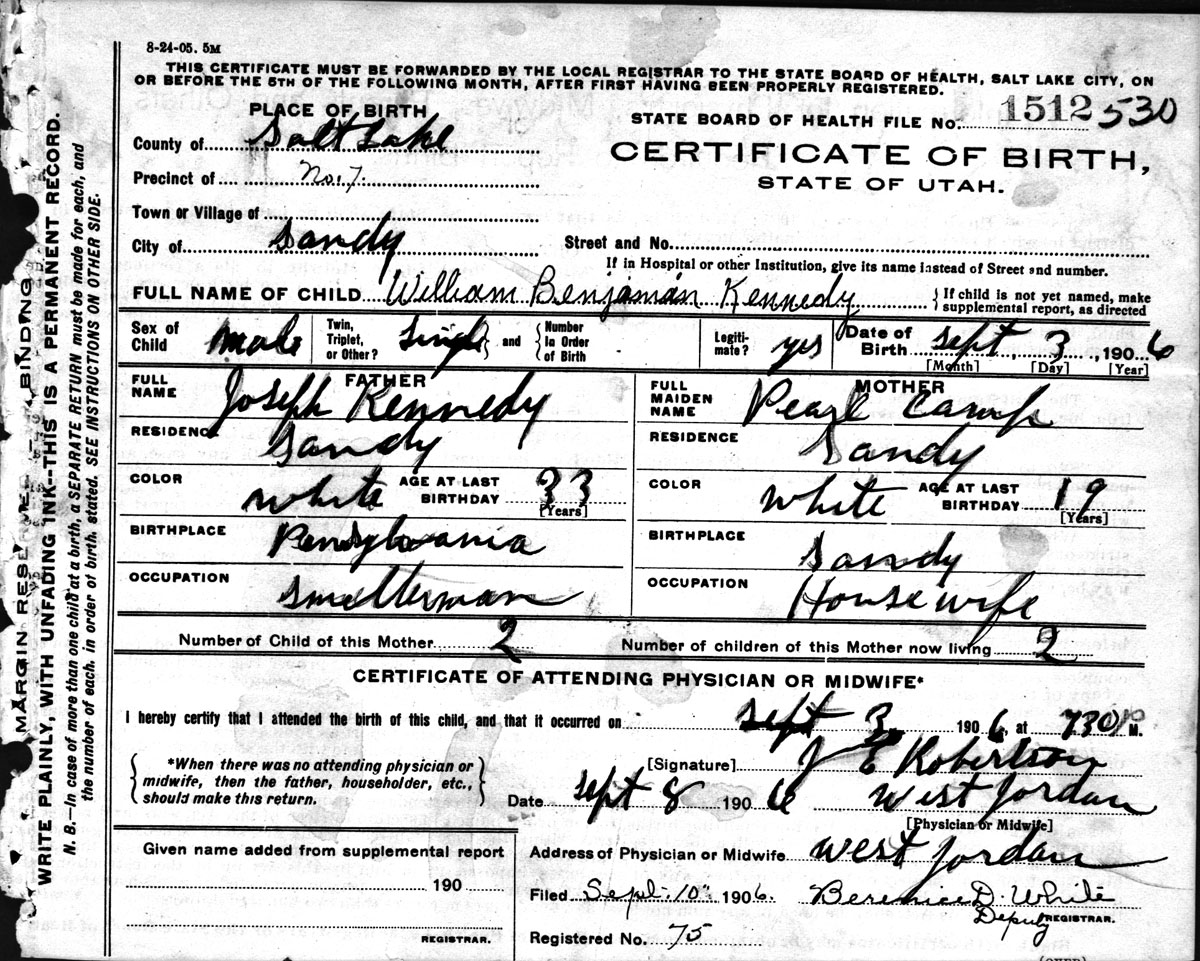 8-24-05. 5M
THIS CERTIFICATE MUST BE FORWARDED BY THE LOCAL REGISTRAR TO THE STATE BOARD OF HEALTH, SALT LAKE CITY, ON
OR BEFORE THE 5TH OF THE FOLLOWING MONTH, AFTER FIRST HAVING BEEN PROPERLY REGISTERED.
PLACE OF BIRTH
STATE BOARD OF HEALTH FILE No. 1512 530
County of Salt Lake
CERTIFICATE OF BIRTH,
STATE OF UTAH.
Precinct of No. 7.
Town or Village of
City of Sandy
Street and No.
If in Hospital or other Institution, give its name instead of Street and number.
FULL NAME OF CHILD William Benjaman Kennedy { If child is not yet named, make supplemental report, as directed
Sex of Child male Twin, Triplet, or Other? Single } and { Number In Order of Birth Legitimate? yes Date of Birth Sept, 3, 1906
[Month] [Day] [Year]
FATHER
FULL NAME Joseph Kennedy
RESIDENCE Sandy
COLOR white AGE AT LAST BIRTHDAY 33
[Years]
BIRTHPLACE Pensylvania
OCCUPATION Smelterman
MOTHER
FULL MAIDEN NAME Pearl Camp
RESIDENCE Sandy
COLOR white AGE AT LAST BIRTHDAY 19
[Years]
BIRTHPLACE Sandy
OCCUPATION Housewife
Number of Child of this Mother 2 Number of children of this Mother now living 2
CERTIFICATE OF ATTENDING PHYSICIAN OR MIDWIFE*
I hereby certify that I attended the birth of this child, and that it occurred on Sept 3 1906, at 730 P M.
{ *When there was no attending physician or midwife, then the father, householder, etc., should make this return. }
[Signature] J E Robertson
Date Sept 8 1906 West Jordan
[Physician or Midwife]
Given name added from supplemental report
190
REGISTRAR.
Address of Physician or Midwife West Jordan
Filed Sept. 10th 1906. Berenice D. White
Deputy REGISTRAR.
Registered No. 75
(OVER)
MARGIN RESERVED FOR BINDING
WRITE PLAINLY, WITH UNFADING INK--THIS IS A PERMANENT RECORD.
N. B.—In case of more than one child at a birth, a SEPARATE RETURN must be made for each, and
the number of each, in order of birth, stated. SEE INSTRUCTIONS ON OTHER SIDE.